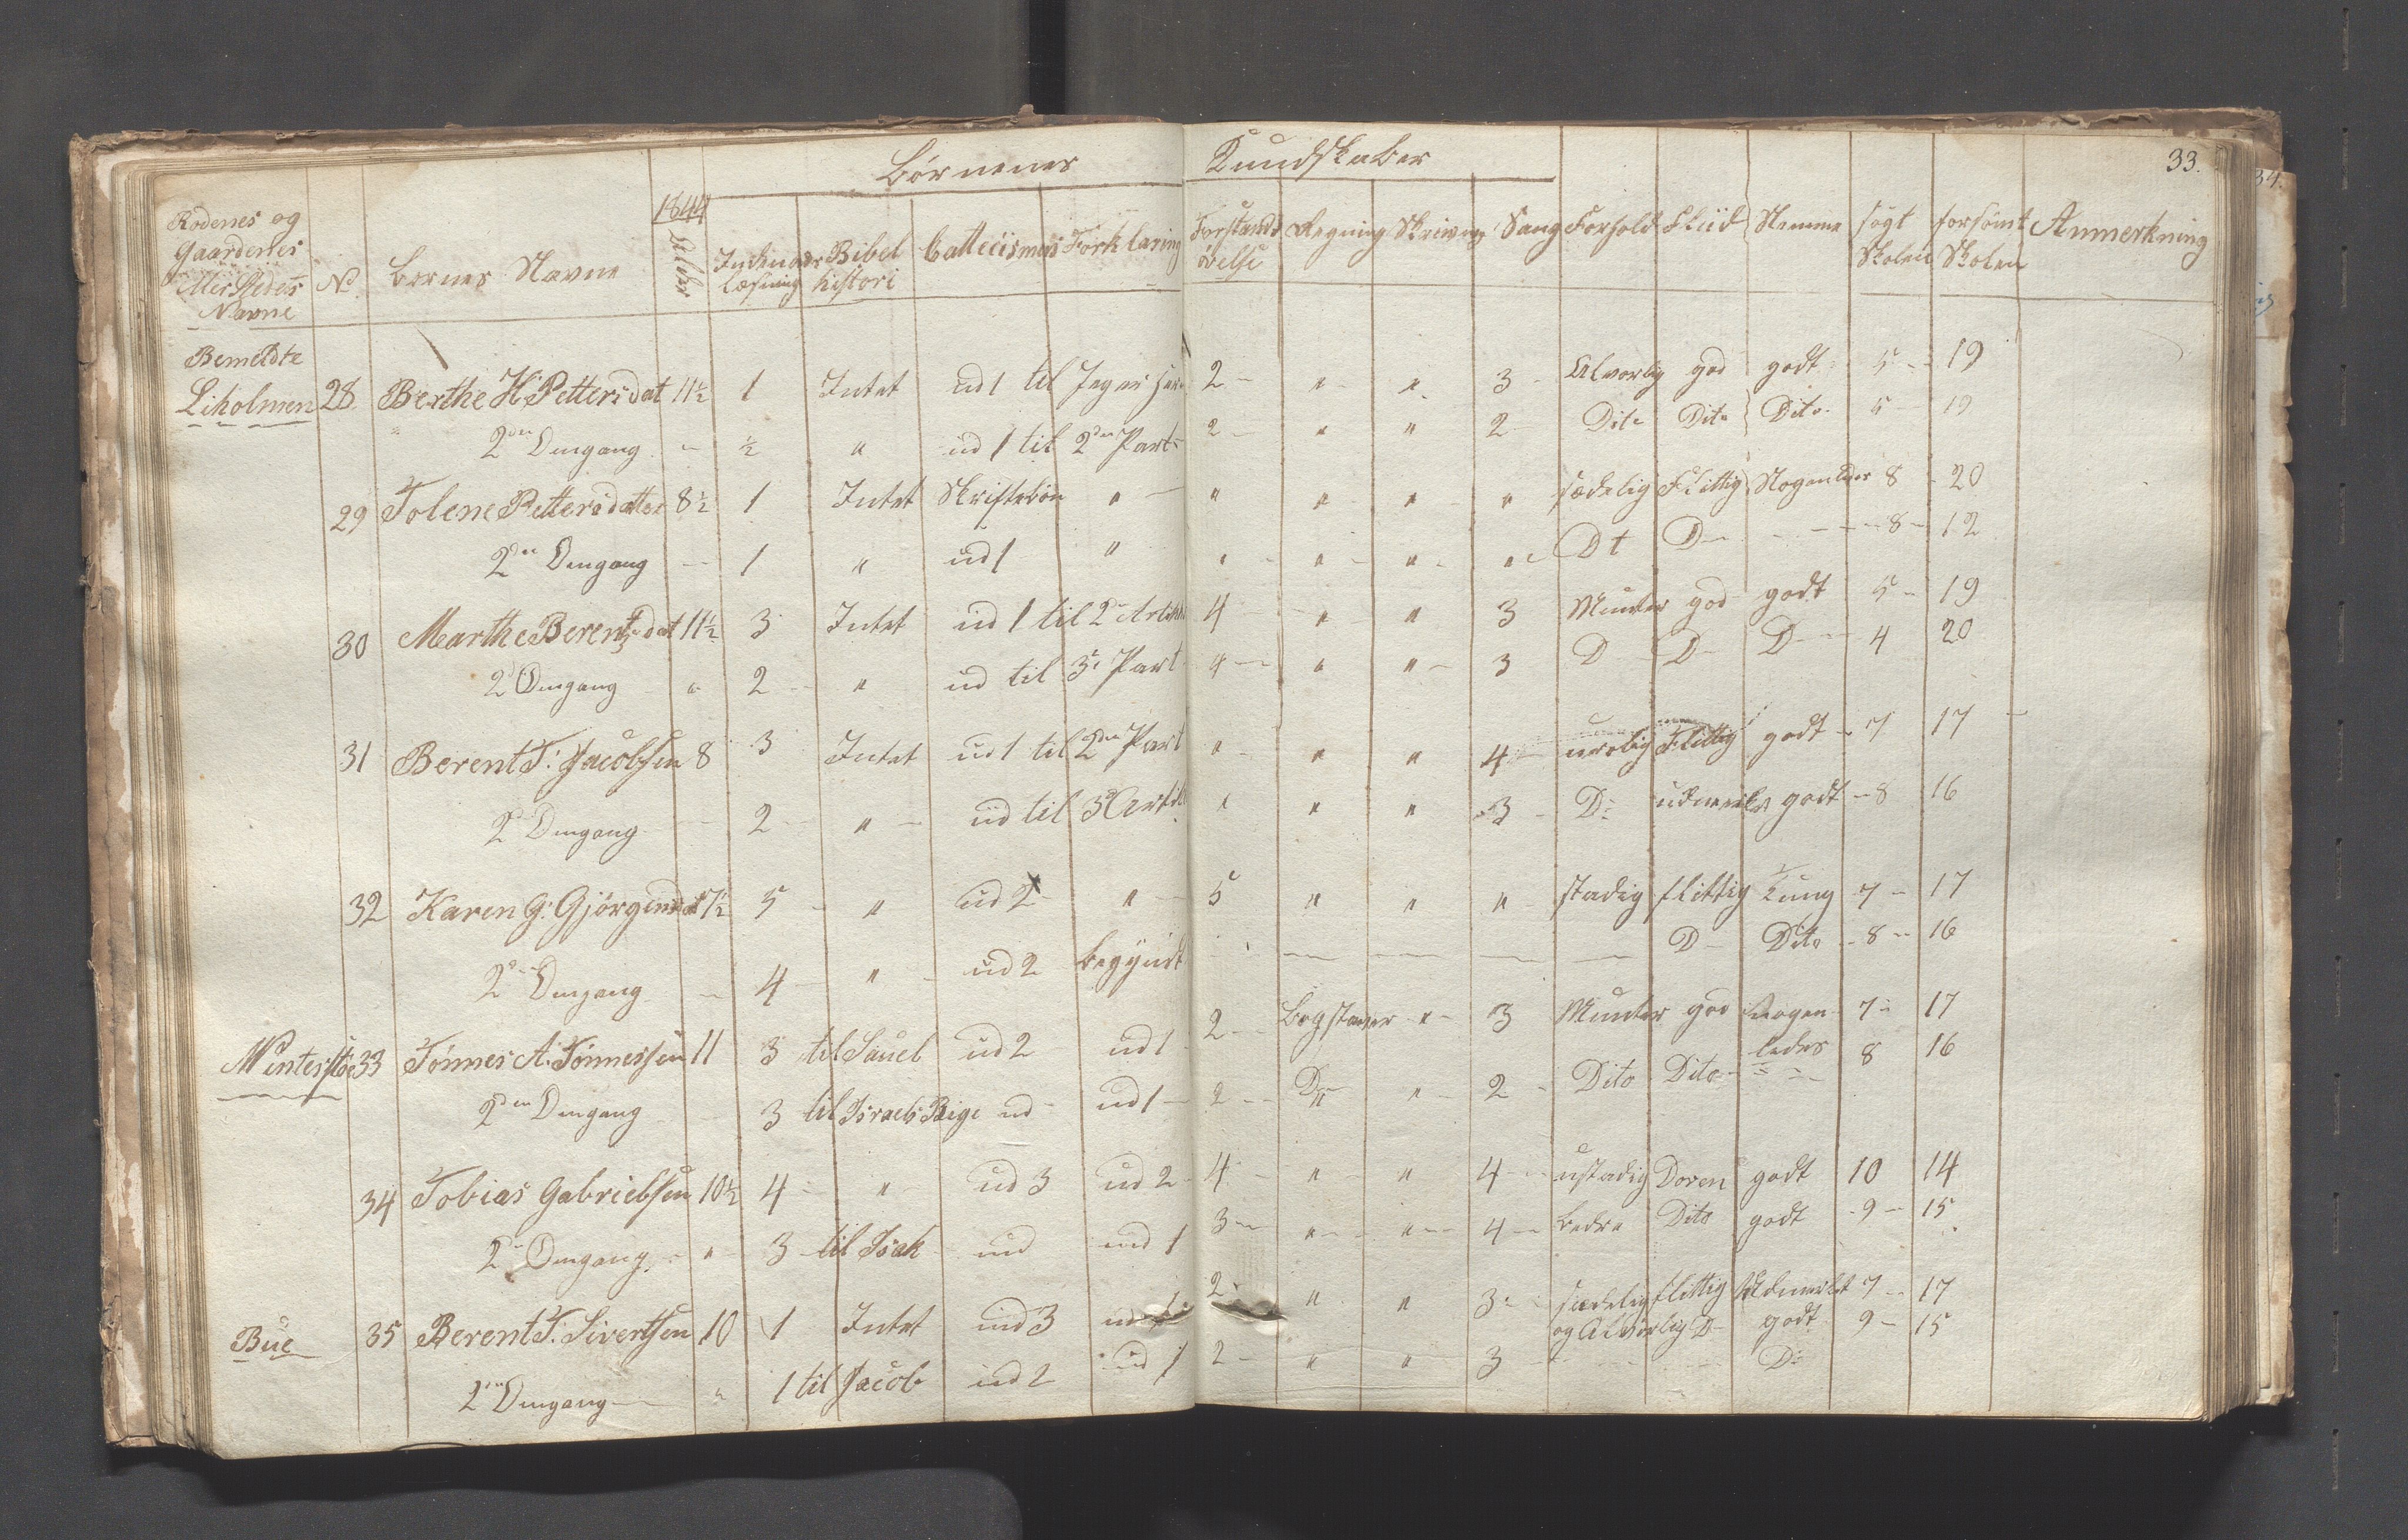 33.
Børnenes Kundskaber
Rodenes og Gaardenes eller Stedets Navne | No | Børnes Navne | 1844 Alder | Indenads læsning | Bibel histori | Catteciismus | Forklaring | Forstands øvelse | Regning | Skrivning | Sang | Forhold | Fliid | Nemme | søgt Skolen | forsømt Skolen | Anmerkning
Bemeldte
Liholmen 28 Berthe H. Pettersdat 11½ 1 Intet ud 1 til 2 - " - " 3 - Alvorlig god godt 5 - 19
2den Omgang - ½ " ud 1 til 2den Part 2 - " " 2 Dito Dito Dito 5 - 19
29 Tolene Pettersdatter 8½ 1 Intet Skriftebøn " " " " " sædelig Flittig Nogenledes 8 - 20
2den Omgang - 1 " ud 1 " " " " " Dt D - - 8 - 12
30 Marthe Berentsdat 11½ 3 Intet ud 1 til 2 Artikel 4 " " 3 Munter god godt 5 - 19
2d Omgang " 2 - " ud til 3die Part 4 - " " - 3 D - D - D - 4 20
31 Berent T. Jacobsen 8 3 Intet ud 1 til 2den Part " " " 4 - urolig Flittig godt - 7 17
2d Omgang 2 - " - ud til 3d Artikel " " " 3 - D: udmerket godt - 8 16
32 Karen G. Gjørgensdat 7½ 5 - " ud 2 " 5 " " " stadig flittig Tung 7 - 17
2d Omgang - 4 " ud 2 begyndt D - Dito - 8 - 16
Vintersto 33 Tønnes A. Tønnessen 11 3 til Sauel ud 2 ud 1 2 - Bogstaver " - 3 Munter god Nogen 7 17
ledes
2den Omgang 3 til Israels Rige ud ud 1 - 2 - D " - 2 - Dito Dito 8 16
34 Tobias Gabrielsen 10½ 4 - " ud 3 ud 2 4 - " - " 4 - ustadig Doven godt 10 14
2d Omgang - " - 3 til Isak ud ud 1 3 - " - " - 4 - bedre Dito godt - 9 - 15
Bue 35 Berent T. Sivertsen 10 1 Intet ud 3 ud 1 2 - " " 3 - sædelig flittig Udmerket 7 - 17
og Alvorlig D - godt 9 - 15
2den Omgang - " 1 til Jacob ud 2 ud 1 2 - " " 3 - D: